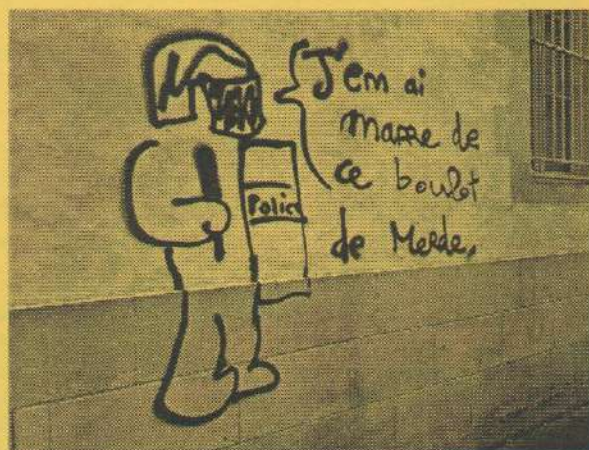 J'em ai
marre de
ce boulot
de Merde.
Police